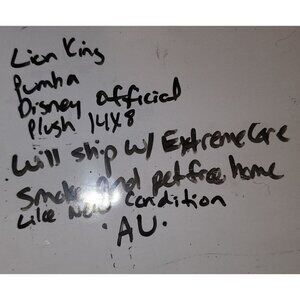 Lion King
Pumba
Disney official
Plush 14x8
will ship w/ Extreme Care
Smoke and pet free home
Like New Condition
·AU·